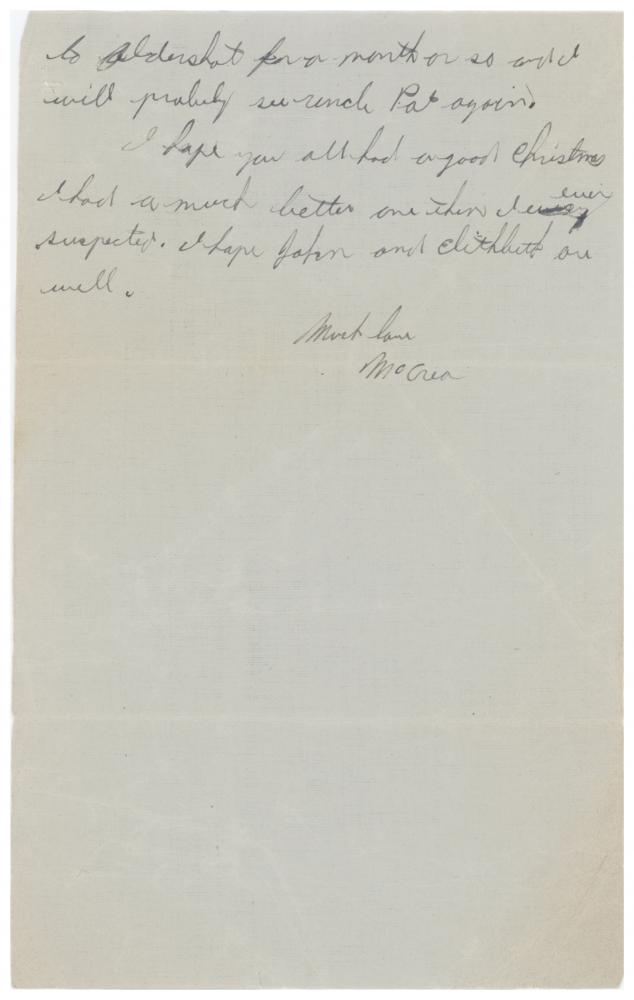 to Aldershot for a month or so and I
will probely see uncle Pat again.
I hope you all had a good Christmas
I had a much better one then I ever
suspected. I hope John and Elithbeth are
well.
Much love
McCrea